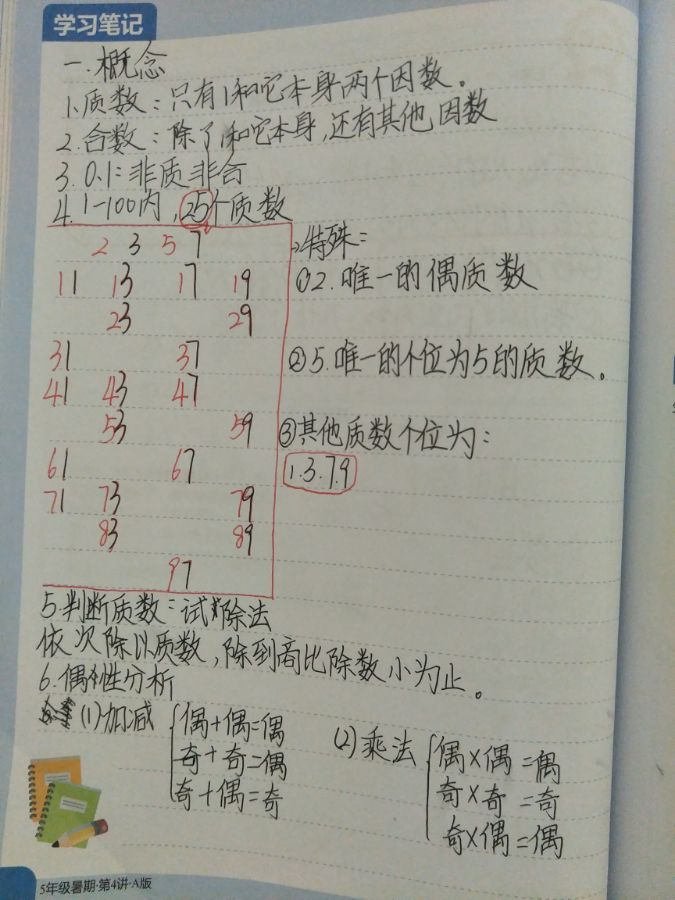 学习笔记
一.概念
1.质数：只有1和它本身两个因数。
2.合数：除了1和它本身,还有其他因数
3.0.1：非质非合
4.1-100内,25个质数
2 3 5 7
→特殊：
11 13 17 19
①2.唯一的偶质数
23 29
31 37
②5.唯一的个位为5的质数。
41 43 47
53 59
③其他质数个位为：
61 67
1.3.7.9
71 73 79
83 89
97
5.判断质数：试除法
依次除以质数,除到商比除数小为止。
6.偶性分析
(1)加减
偶+偶=偶
奇+奇=偶
奇+偶=奇
(2)乘法
偶×偶=偶
奇×奇=奇
奇×偶=偶
5年级暑期·第4讲·A版